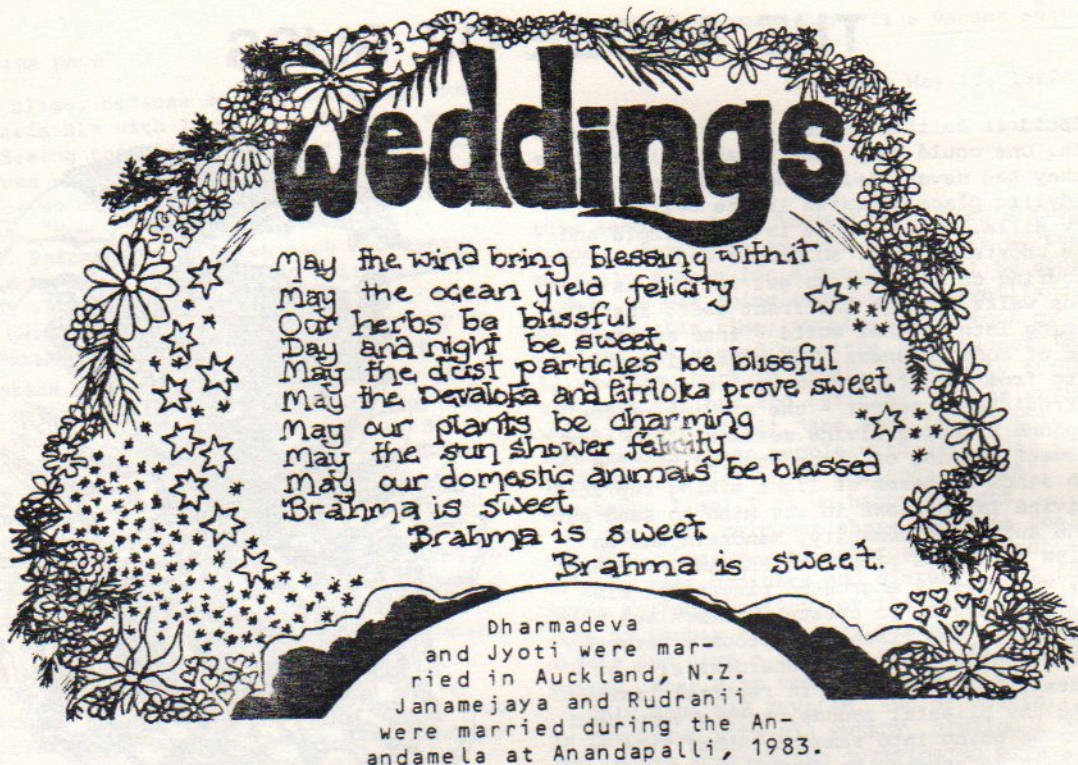 weddings
May the wind bring blessing with it
May the ocean yield felicity
Our herbs be blissful
Day and night be sweet.
May the dust particles be blissful
May the Devaloka and Pitrloka prove sweet
May our plants be charming
May the sun shower felicity
May our domestic animals be, blessed
Brahma is sweet
Brahma is sweet
Brahma is sweet.
Dharmadeva
and Jyoti were mar-
ried in Auckland, N.Z.
Janamejaya and Rudranii
were married during the An-
andamela at Anandapalli, 1983.